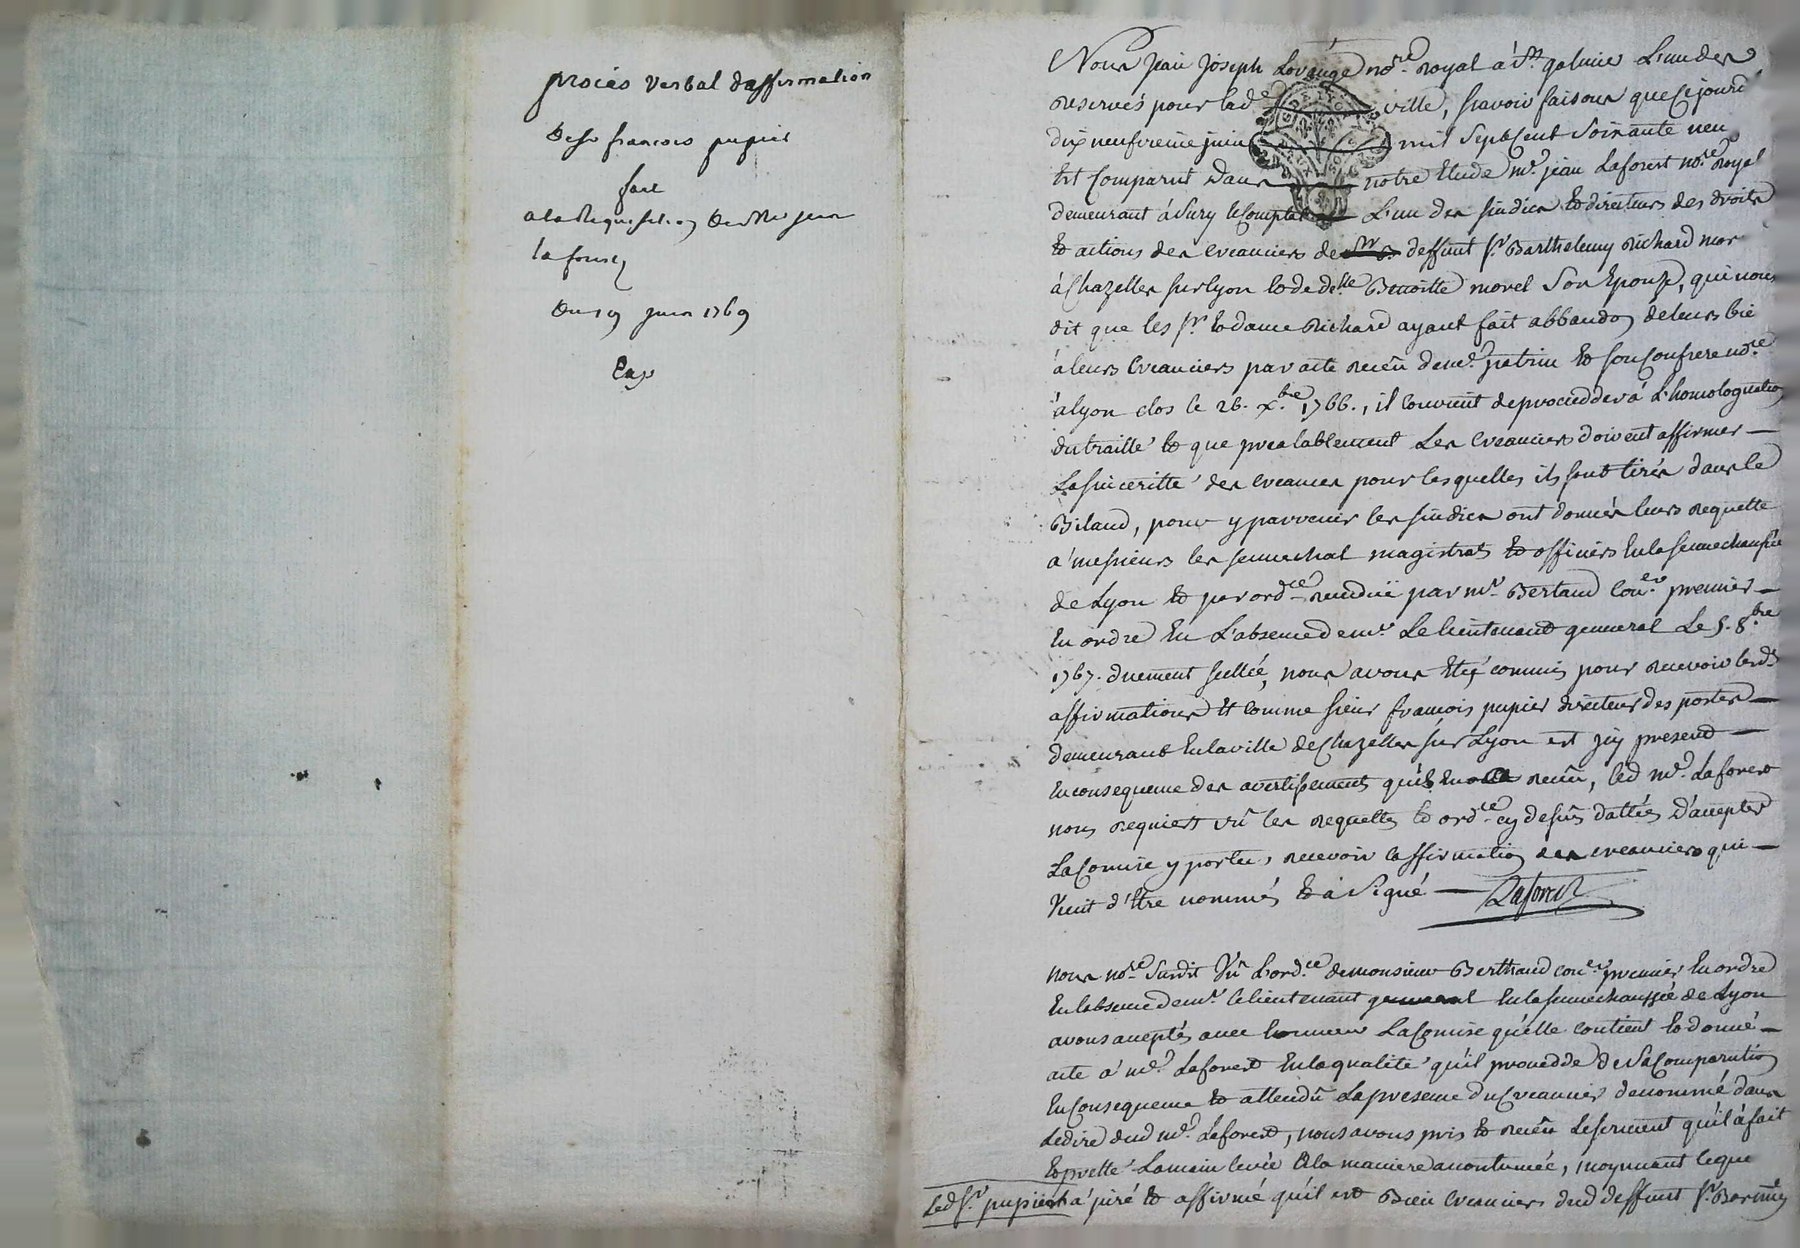 procès verbal daffirmation
de sr francois pupier
fait
a la Requisition de Me jean
la forest
du 19 juin 1769
Exp
Nous Jean Joseph nore royal à St galmie L'un des
reservés pour lade ville, sçavoir faisons que cejourd
dix neufvieme juin mil sept cent soixante neu
Est comparut dans notre Etude me jean Laforest nore royal
demeurant à Sury le Comptal L'un des sindics & directeurs des droits
& actions des creanciers de deffunt sr Barthelemy Richard mor
à Chazelles sur lyon & de delle Benoitte morel Son Epouse, qui nous
dit que les sr & dame Richard ayant fait abbandon de leurs bie
à leurs creanciers par acte reçeu de me patrin & son Confrere nore
à lyon clos le 26. xbre 1766., il convient de procedder à L'homologation
du traitté & que prealablement Les creanciers doivent affirmer —
La sinceritté des creances pour lesquelles ils sont tirés dans le
Biland, pour y parvenir les sindics ont donnés leurs requette
a messieurs les senechal magistrats & officiers En la senechaussée
de Lyon & par ordce rendüe par mr Bertaud coner premier —
En ordre En L'absence de mr Le lieutenant general Le 5. 8bre
1767. duement scellée, nous avons Eté commis pour recevoir lesds
affirmations Et comme sieur françois pupier directeur des postes —
demeurant En la ville de Chazelles sur Lyon est icy present —
En consequence des avertissements qu'il En a reçeu, led me Laforest
nous requiert vû les requettes & ordce cy dessus dattés d'accepter
La Comise y portée, recevoir l'affirmation des creanciers qui —
vient d'Etre nommés & à signé — Laforest
nous nore susdit Vû L'ordce de monsieur Berthaud coner premier En ordre
En l'absence de mr le lieutenant general En la senechaussée de Lyon
avons acceptés avec honneur La Comise qu'elle contient & donné —
acte à me Laforest En la qualité qu'il procedde de sa Comparution
En Consequence & attendu La presence du Creancier denommé dans
Le dire dud me Laforest, nous avons pris & reçeu Le serment qu'il à fait
& pretté La main levée à la maniere accoutumée, moyennant leque
Led sr pupier à juré & affirmé qu'il est Bien creanciers dud deffunt sr